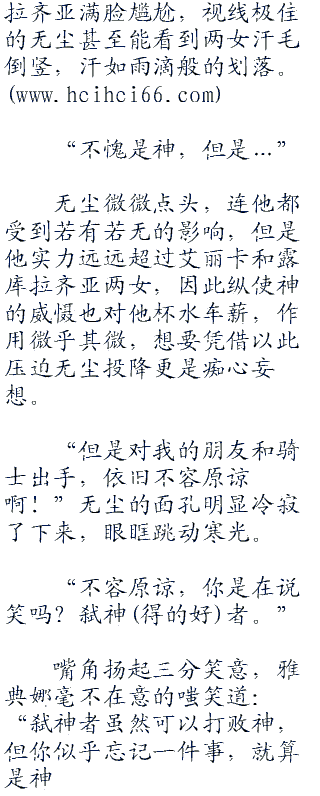 拉齐亚满脸尴尬，视线极佳
的无尘甚至能看到两女汗毛
倒竖，汗如雨滴般的划落。
(www.hcihci66.com)
“不愧是神，但是…”
无尘微微点头，连他都
受到若有若无的影响，但是
他实力远远超过艾丽卡和露
库拉齐亚两女，因此纵使神
的威慑也对他杯水车薪，作
用微乎其微，想要凭借以此
压迫无尘投降更是痴心妄
想。
“但是对我的朋友和骑
士出手，依旧不容原谅
啊！”无尘的面孔明显冷寂
了下来，眼眶跳动寒光。
“不容原谅，你是在说
笑吗？弑神(得的好)者。”
嘴角扬起三分笑意，雅
典娜毫不在意的嗤笑道：
“弑神者虽然可以打败神，
但你似乎忘记一件事，就算
是神